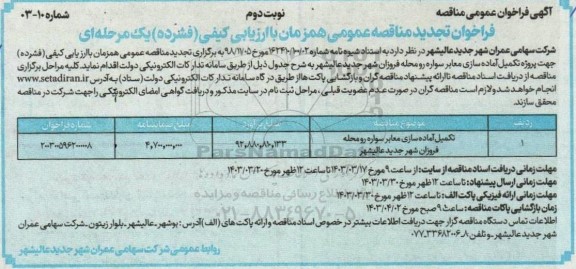 آگهی فراخوان عمومی مناقصه
نوبت دوم
شماره ۱۰-۰۳
فراخوان تجدید مناقصه عمومی همزمان با ارزیابی کیفی (فشرده) یک مرحله‌ای
شرکت سهامی عمران شهر جدید عالیشهر در نظر دارد به استناد شیوه نامه شماره مورخ ۹۸/۱۱/۰۵ به برگزاری تجدید مناقصه عمومی همزمان با ارزیابی کیفی (فشرده)
جهت پروژه تکمیل آماده سازی معابر سواره رو محله فروزان شهر جدید عالیشهر به شرح جدول ذیل از طریق سامانه تدارکات الکترونیکی دولت اقدام نماید. کلیه مراحل برگزاری
مناقصه از دریافت اسناد مناقصه تا ارائه پیشنهاد مناقصه گران و بازگشایی پاکت ها از طریق درگاه سامانه تدارکات الکترونیکی دولت (ستاد) به آدرس www.setadiran.ir
انجام خواهد شد و لازم است مناقصه گران در صورت عدم عضویت قبلی، مراحل ثبت نام در سایت مذکور و دریافت گواهی امضای الکترونیکی را جهت شرکت در مناقصه
محقق سازند.
ردیف
شماره فراخوان
۱
تکمیل آماده سازی معابر سواره رو محله
فروزان شهر جدید عالیشهر
مهلت زمانی دریافت اسناد مناقصه از سایت: از ساعت ۹ مورخ ۱۴۰۳/۰۳/۱۷ تا ساعت ۱۲ ظهر مورخ ۱۴۰۳/۰۳/۲۰
مهلت زمانی ارسال پیشنهاد: تا ساعت ۱۲ ظهر مورخ ۱۴۰۳/۰۳/۳۰
مهلت زمانی ارائه فیزیکی پاکت الف: تا ساعت ۱۲ ظهر مورخ ۱۴۰۳/۰۳/۳۰
زمان بازگشایی پاکات مناقصه: ساعت ۹ صبح مورخ ۱۴۰۳/۰۴/۰۲
اطلاعات تماس دستگاه مناقصه گزار جهت دریافت اطلاعات بیشتر در خصوص اسناد مناقصه و ارائه پاکت های (الف) آدرس: بوشهر، عالیشهر، بلوار زیتون، شرکت سهامی عمران
شهر جدید عالیشهر - و تلفن ۸-۳۳۶۸۲۰۰۶-۰۷۷
روابط عمومی شرکت سهامی عمران شهر جدید عالیشهر